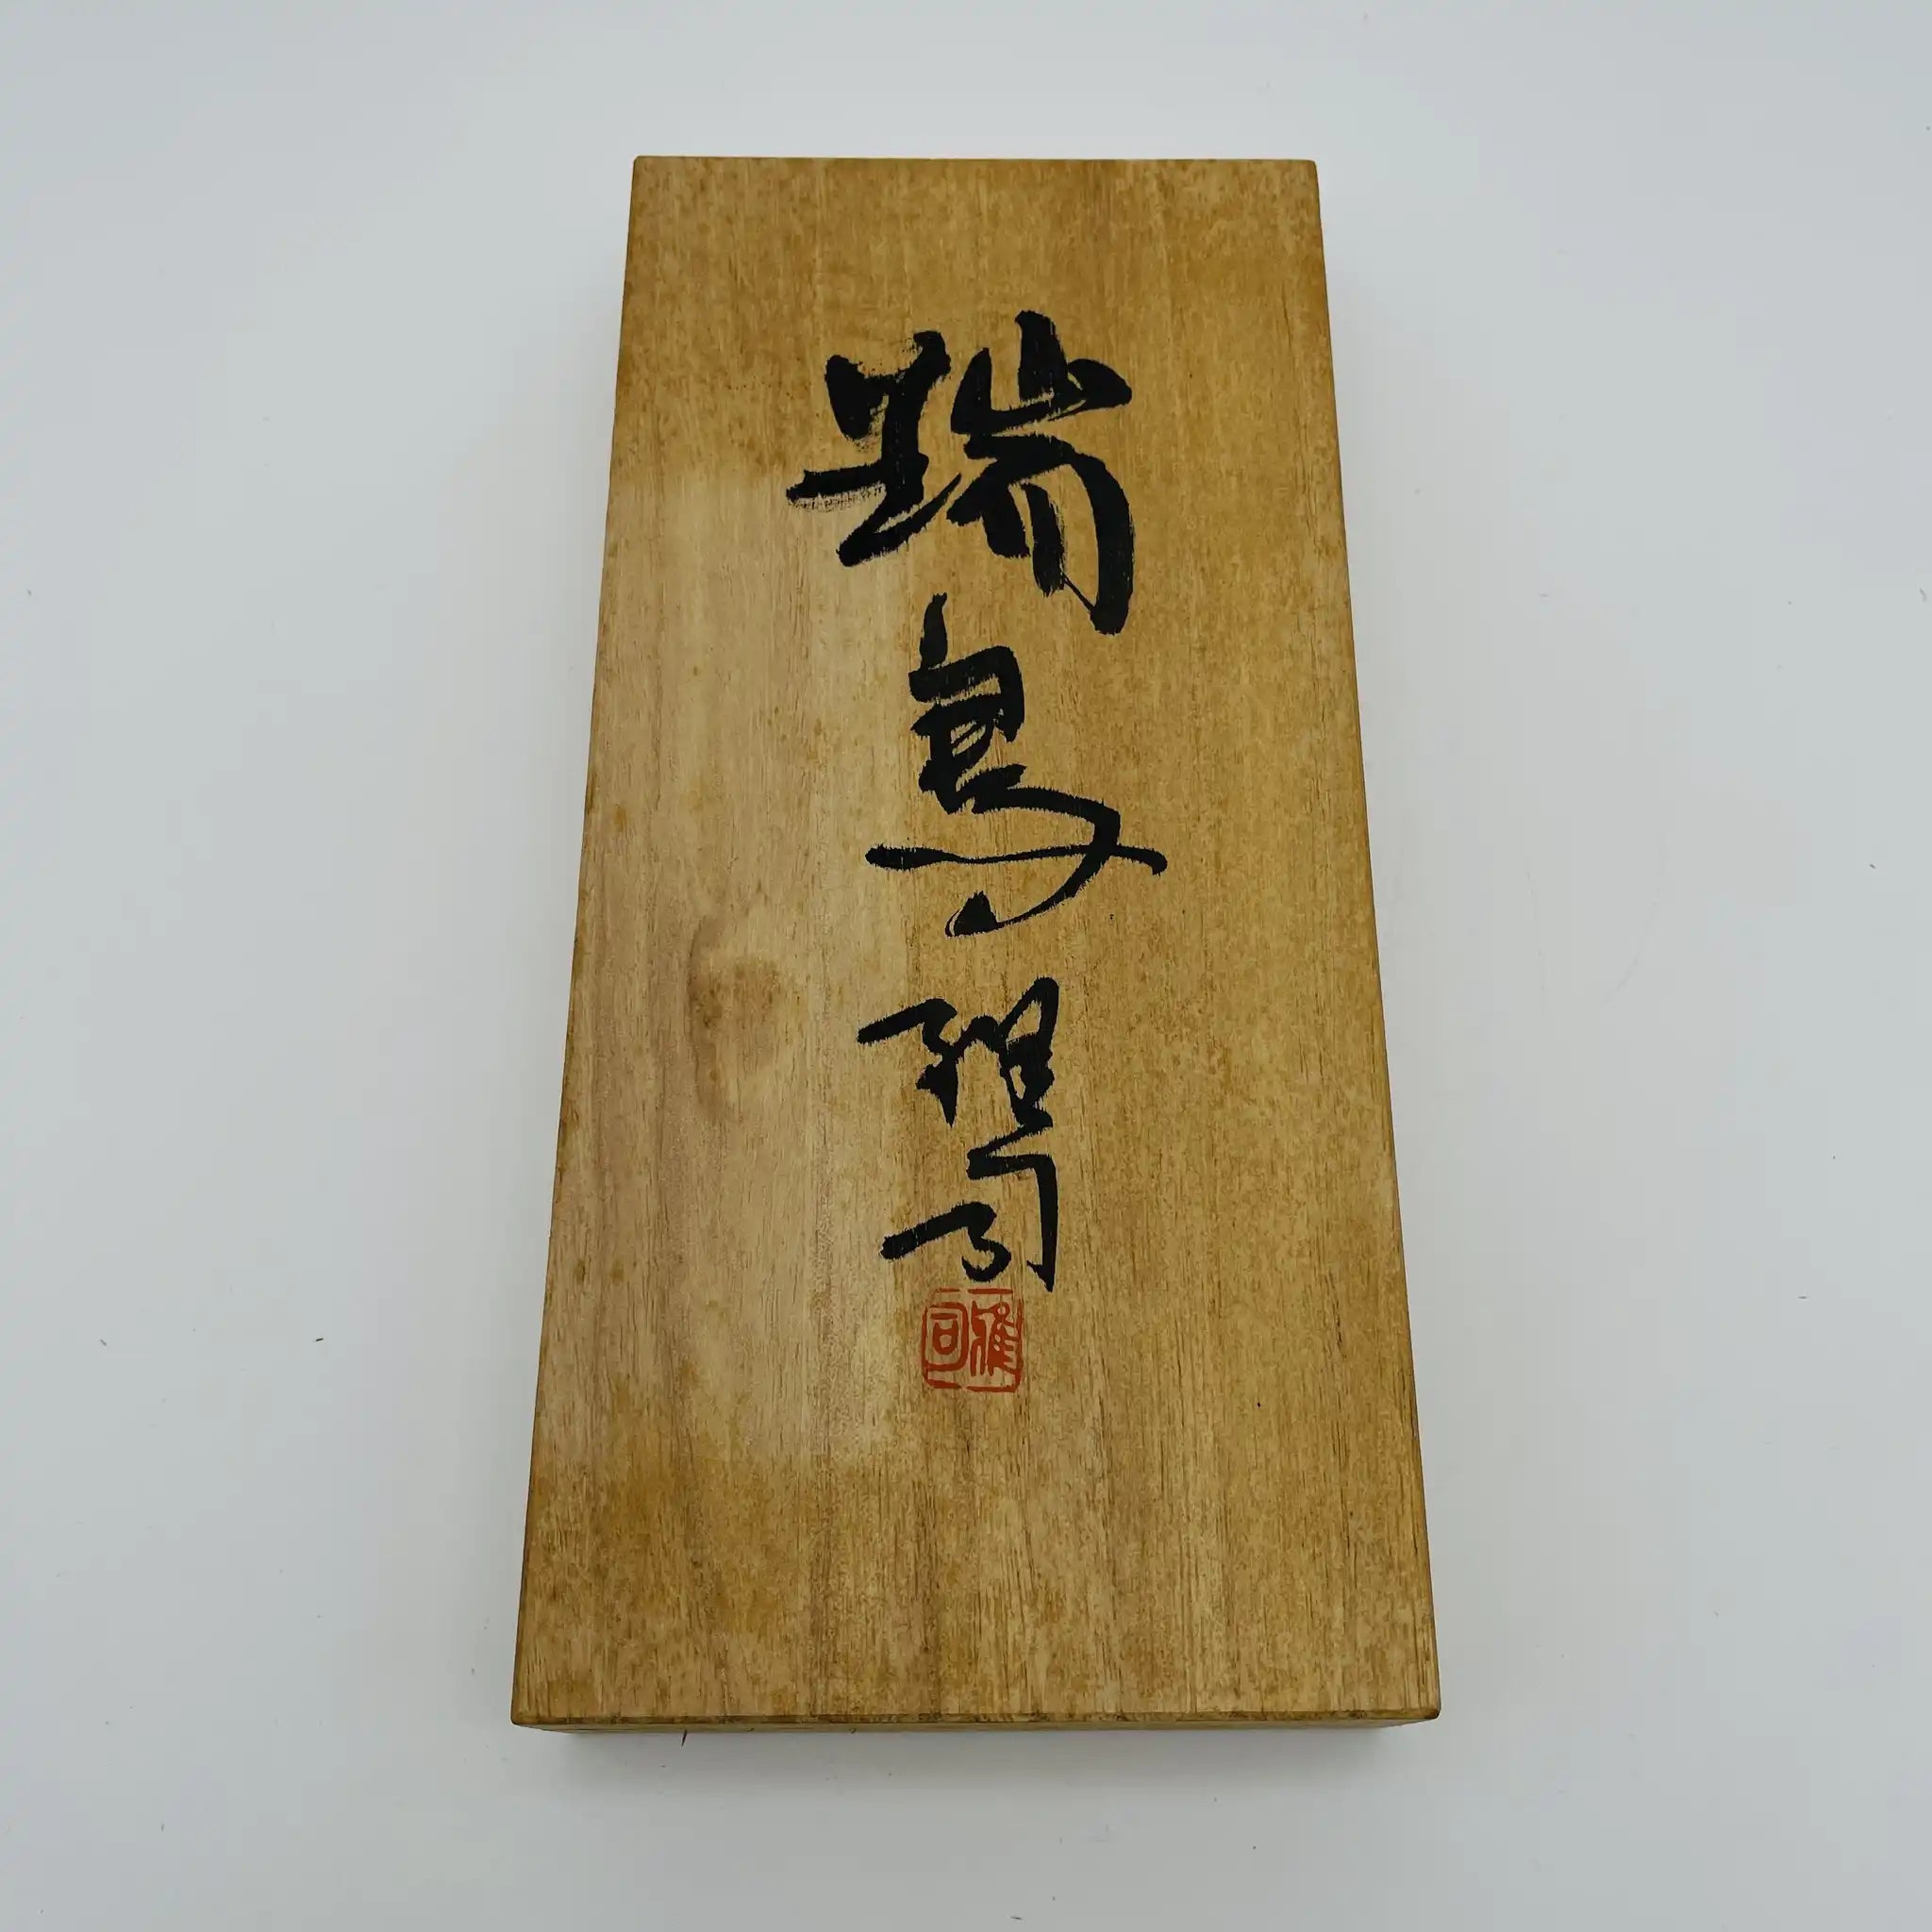 瑞鳥
雅司
雅司